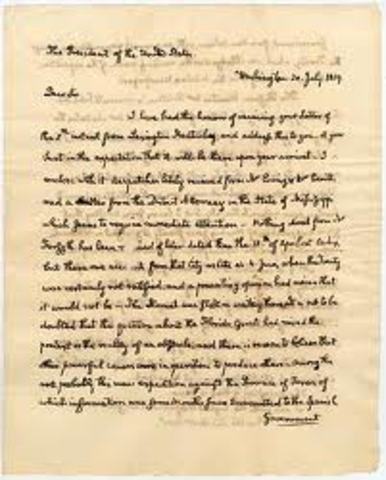 The President of the United States.
Washington 20. July 1819
Dear Sir
I have had the honour of receiving your Letter of
the 5th instant from Lexington Kentucky, and address this to you
in the expectation that it will be there upon your arrival. I
enclose with it despatches lately received from Mr
and a Letter from the District Attorney in the State of Mississippi
which seems to require immediate attention. Nothing from Mr
Forsyth has been of later date than the 11th of
but there are from that city as late as 4 June, when the Treaty
was certainly not ratified, and a prevailing opinion had arisen that
it would not be. The Hornet was still waiting there. It is not to be
doubted that the question about the Florida Grants had raised the
pretext or the reality of an obstacle, and there is reason to believe that
other powerful causes were in operation to produce others. Among them
not probably this new expedition against the Province of Texas of
which information was some months since transmitted to the Spanish
Government